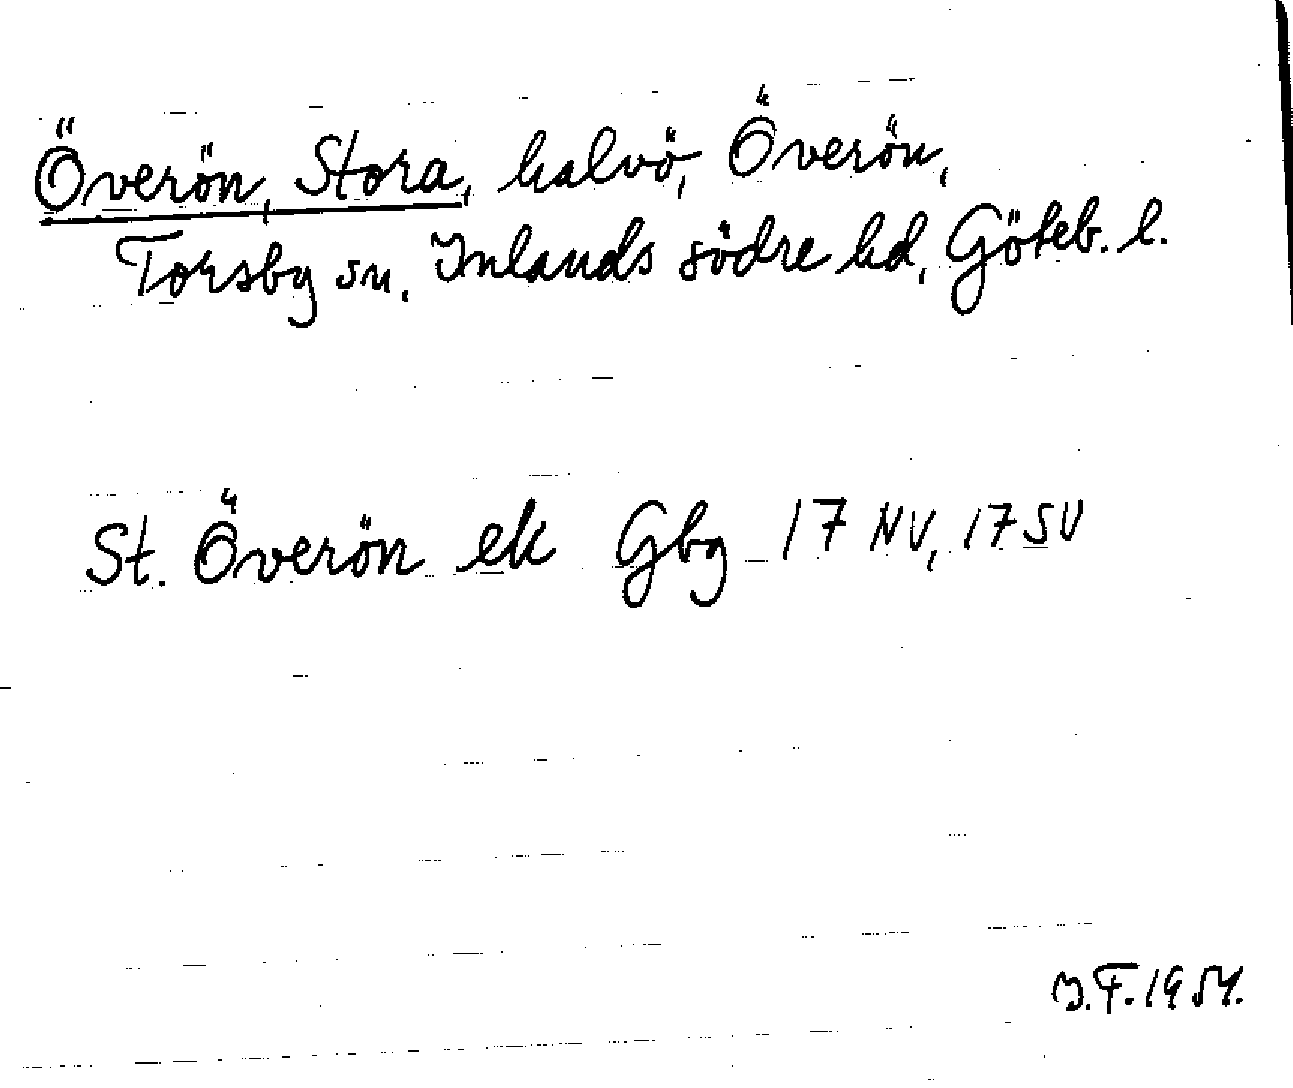 Överön, Stora, halvö, Överön,
Torsby sn, Inlands södre hd, Göteb. l.
St. Överön ek Gbg 17 NV, 17 SV
J.F. 1954.